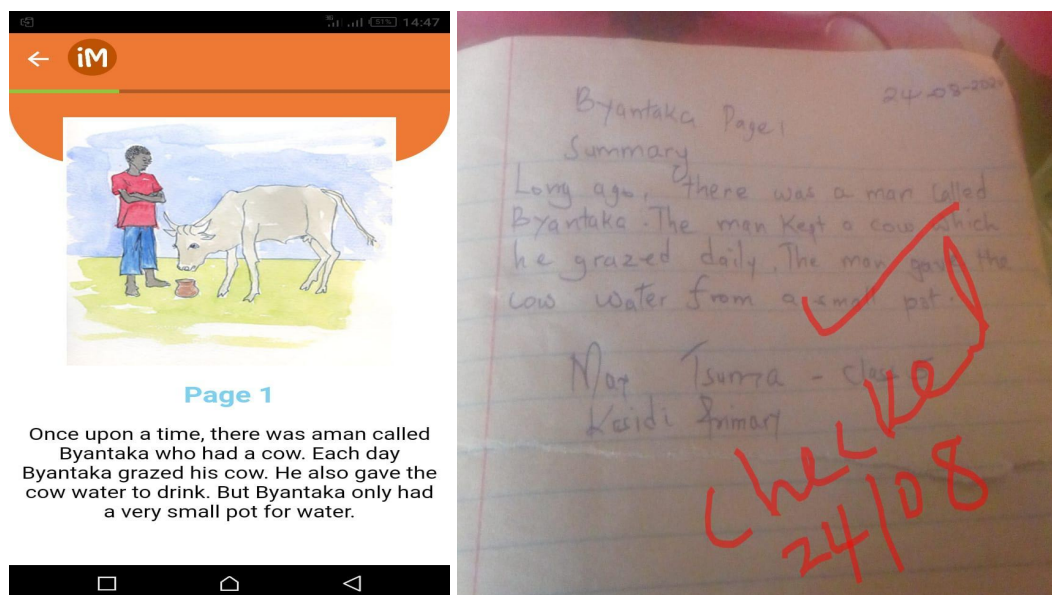 14:47
51%
iM
Page 1
Once upon a time, there was aman called
Byantaka who had a cow. Each day
Byantaka grazed his cow. He also gave the
cow water to drink. But Byantaka only had
a very small pot for water.
24-08-2020
Byantaka Page 1
Summary
Long ago, there was a man called
Byantaka. The man kept a cow which
he grazed daily. The man gave the
cow water from a small pot.
Tsuma - Class 5
Primary
Checked
24/08